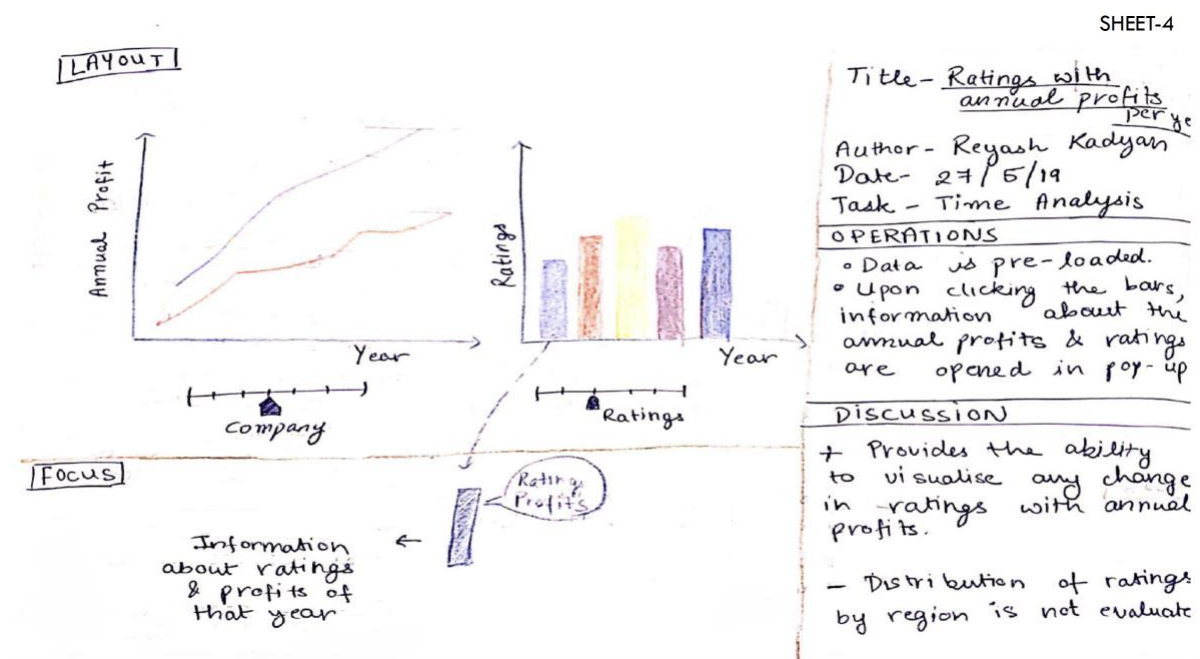 SHEET-4
LAYOUT
Annual Profit
Year
Company
Ratings
Year
Ratings
FOCUS
Rating
Profits
Information
about ratings
& profits of
that year
Title- Ratings with
annual profits
per ye
Author- Reyash Kadyan
Date- 27/5/19
Task - Time Analysis
OPERATIONS
• Data is pre-loaded.
• Upon clicking the bars,
information about the
annual profits & ratings
are opened in pop-up
DISCUSSION
+ Provides the ability
to visualise any change
in ratings with annual
profits.
- Distribution of ratings
by region is not evaluate